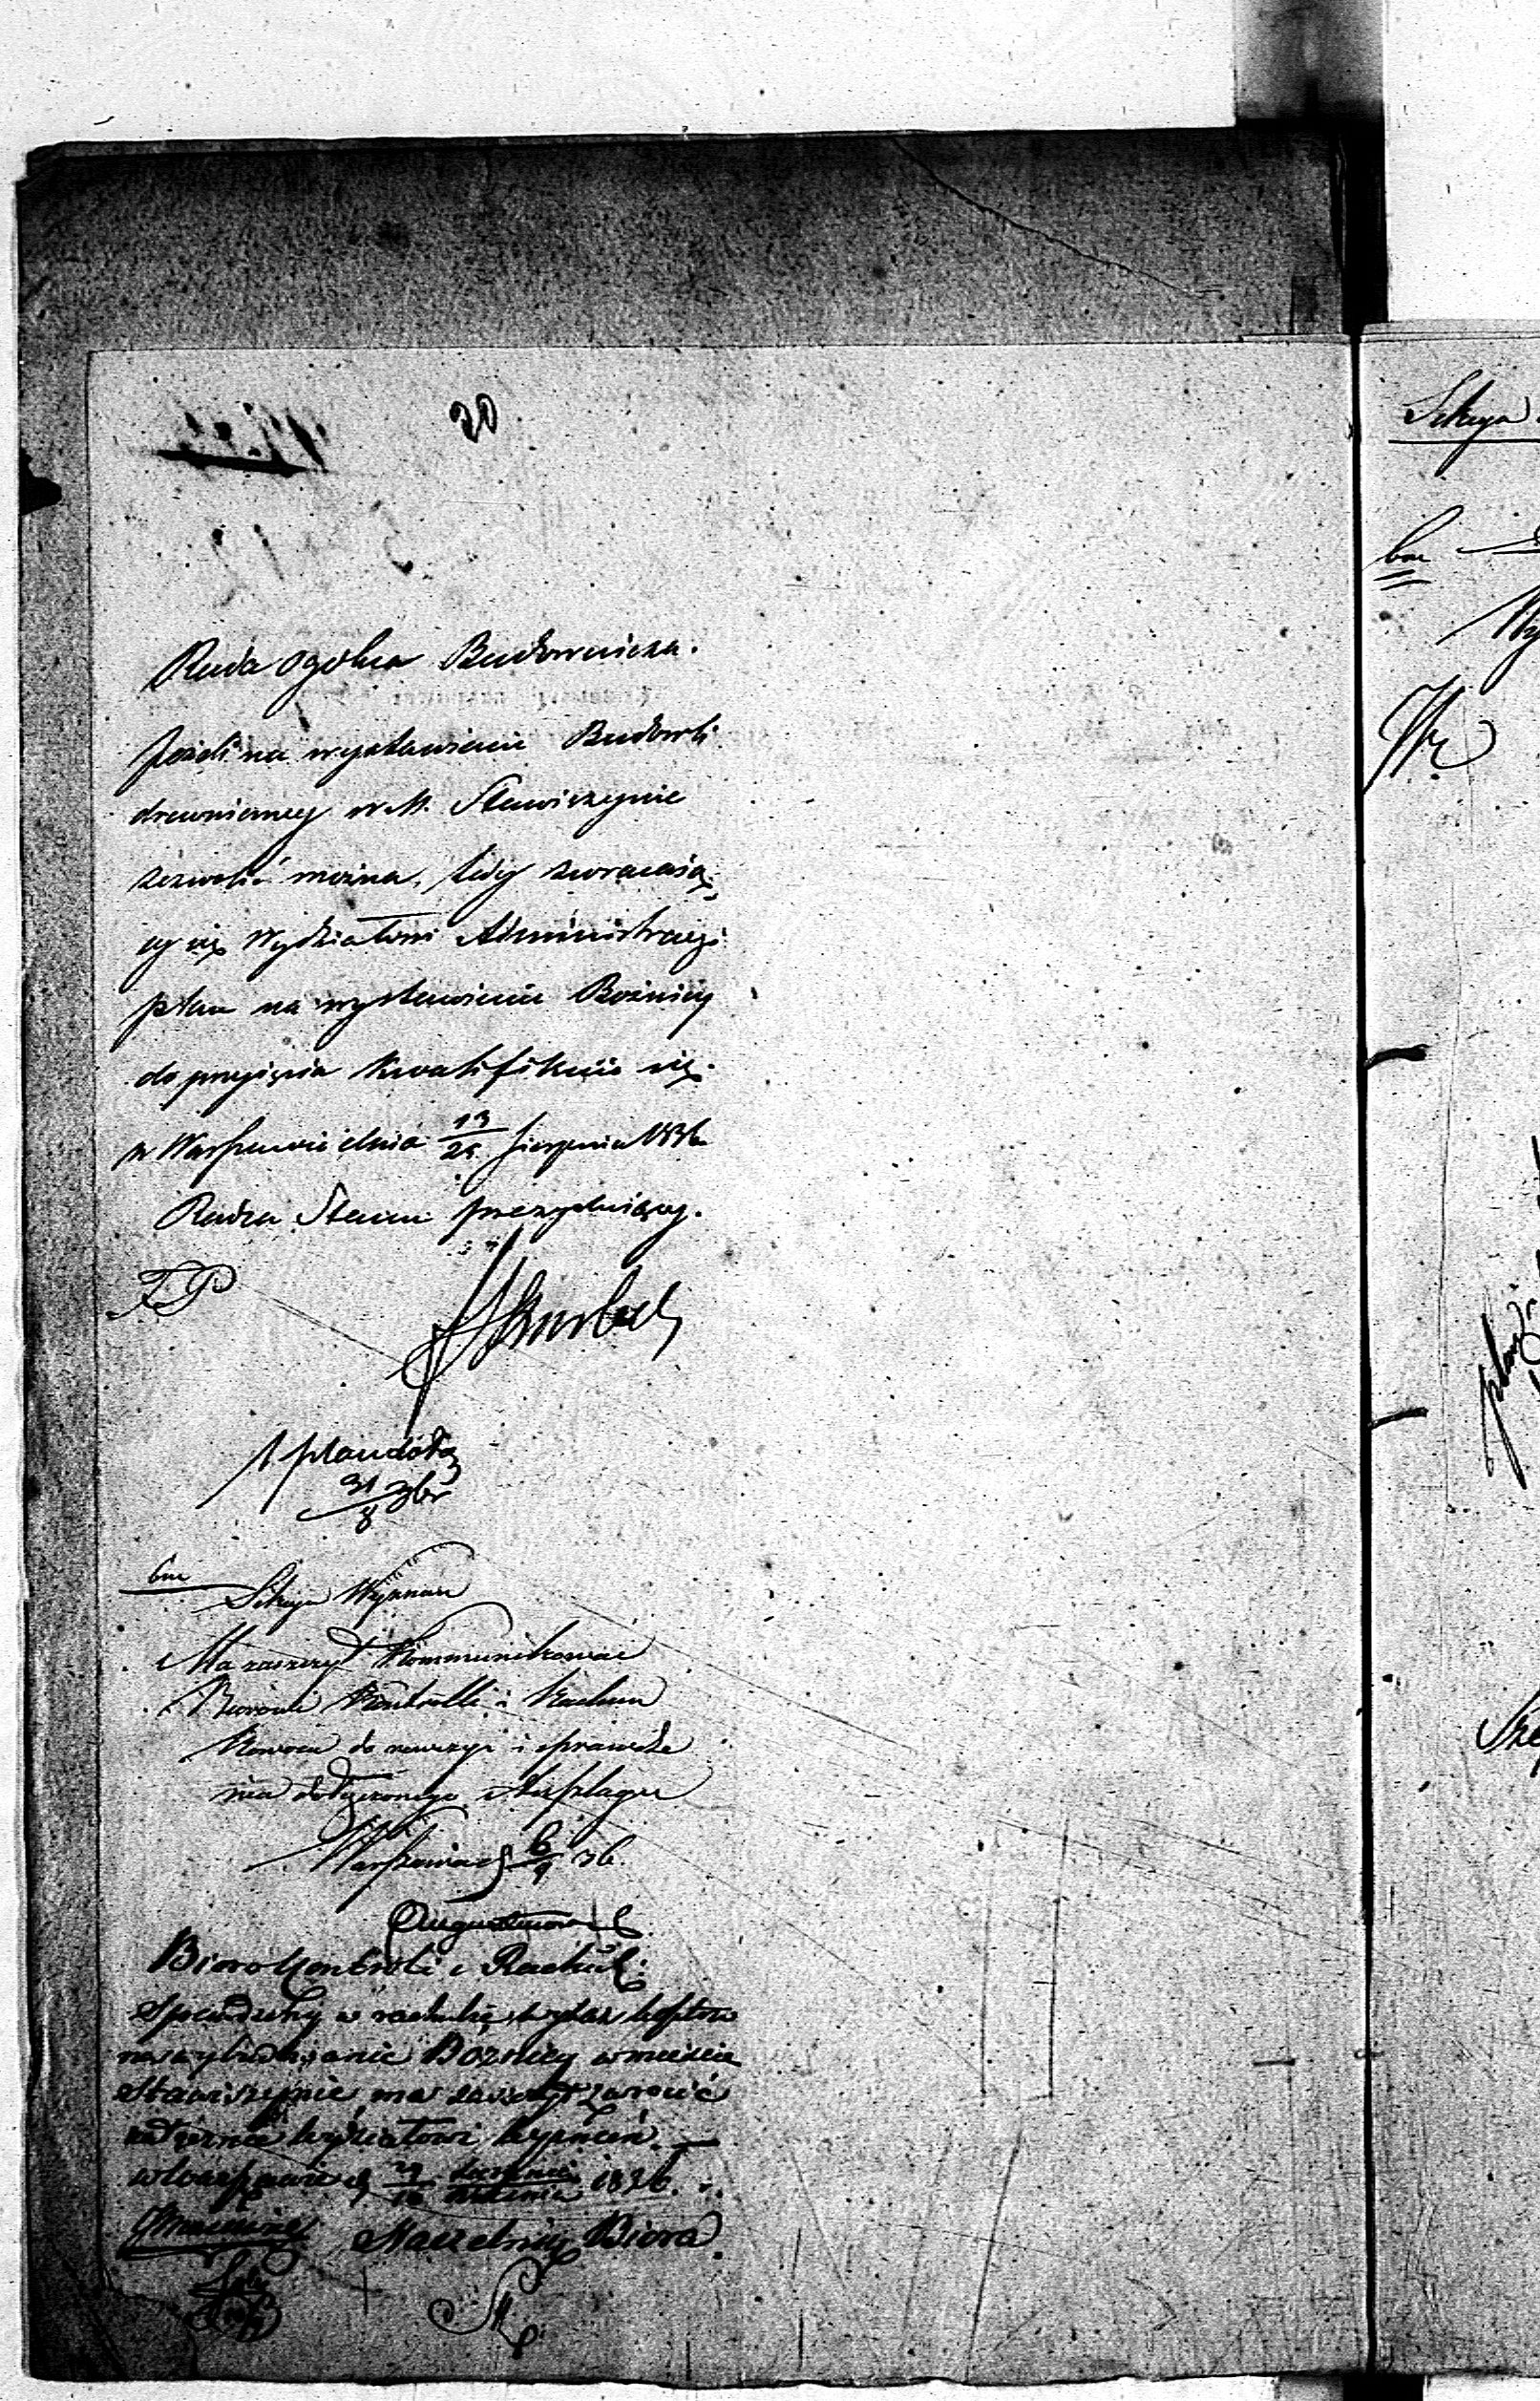 20
Rada ogólna Budownicza.
Jeżeli na wystawienie Budowli
drewnianey w M. Stawiszynie
zezwolić można, tedy zwracaią
cy się Wydziałowi Administracyi
plan na wystawienie Bożnicy
do przyięcia kwalifikuie się.
w Warszawie dnia 13/25 Sierpnia 1836
Radca Stanu prezyduiący.
bm
Sekcya Wyznań
Ma zaszczyt kommunikować
Biórowi Kontrolli i Rachun
kowości do rewizyi i sprawdze
nia dołączonego Anszlagu
Warszawa d 6/9 36.
Bióro Kontroli i Rachuk:
Sprawdzony w rachubie wykaz kosztów
na wybudowanie Bożnicy w mieście
Stawiszynie, ma zaszczyt zwrócić
Wydziałowi Wyznań.
w Warszawie d 1836.
Naczelnik Biora
Sekcya
bm